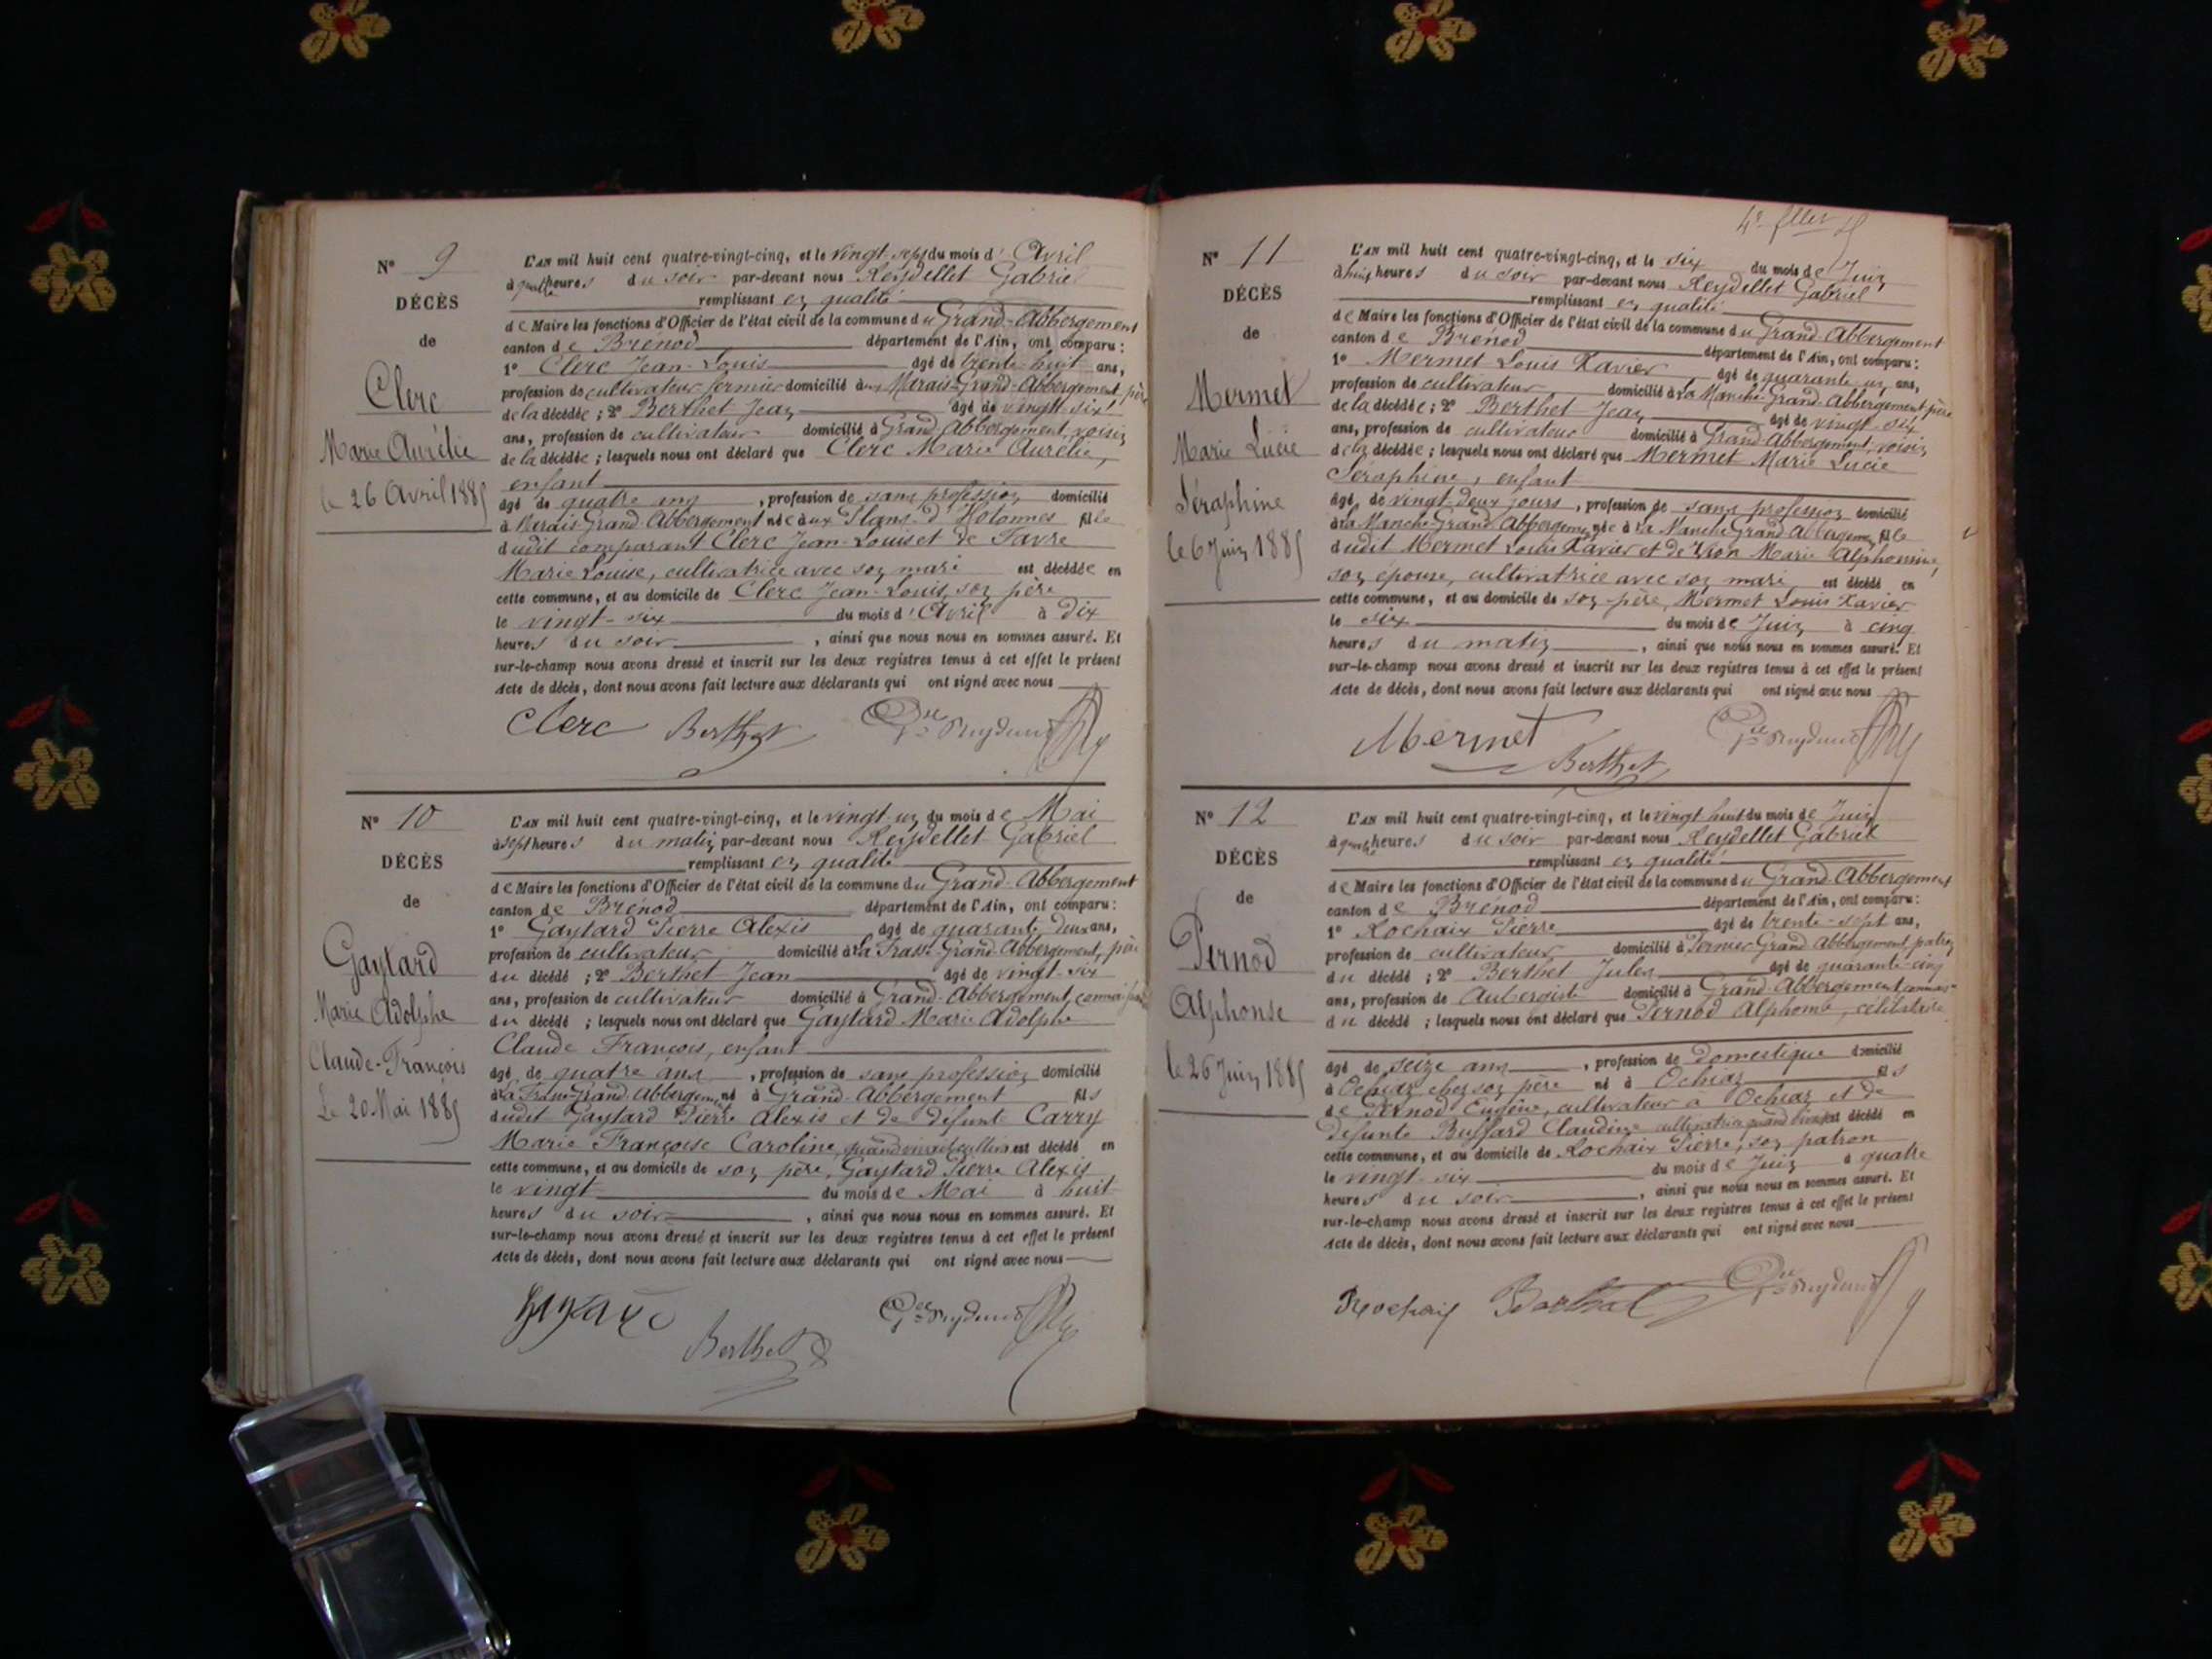 N° 9
DÉCÈS
de
Clerc
Marie Aurélie
le 26 Avril 1885
L'AN mil huit cent quatre-vingt-cinq, et le vingt sept du mois d' Avril
à quatre heures du soir par-devant nous Reydellet Gabriel
remplissant en qualité
de Maire les fonctions d'Officier de l'état civil de la commune du Grand-Abbergement
canton de Brénod département de l'Ain, ont comparu :
1° Clerc Jean-Louis âgé de trente huit ans,
profession de cultivateur fermier domicilié aux Marais-Grand-Abbergement, père
de la décédée ; 2° Berthet Jean âgé de vingt-six
ans, profession de cultivateur domicilié à Grand Abbergement, voisin
de la décédée ; lesquels nous ont déclaré que Clerc Marie Aurélie,
enfant
âgé de quatre ans, profession de sans profession domicilié
à Marais Grand-Abbergement née aux Plans d'Hotonnes fille
dudit comparant Clerc Jean-Louis et de Favre
Marie Louise, cultivatrice avec son mari est décédée en
cette commune, et au domicile de Clerc Jean-Louis, son père
le vingt-six du mois d' Avril à dix
heures du soir, ainsi que nous nous en sommes assuré. Et
sur-le-champ nous avons dressé et inscrit sur les deux registres tenus à cet effet le présent
Acte de décès, dont nous avons fait lecture aux déclarants qui ont signé avec nous
Clerc Berthet
N° 10
DÉCÈS
de
Gaytard
Marie Adolphe
Claude-François
Le 20 Mai 1885
L'AN mil huit cent quatre-vingt-cinq, et le vingt-un du mois de Mai
à sept heures du matin par-devant nous Reydellet Gabriel
remplissant en qualité
de Maire les fonctions d'Officier de l'état civil de la commune du Grand-Abbergement
canton de Brénod département de l'Ain, ont comparu :
1° Gaytard Pierre Alexis âgé de quarante deux ans,
profession de cultivateur domicilié à La Frasse-Grand-Abbergement, père
du décédé ; 2° Berthet Jean âgé de vingt-six
ans, profession de cultivateur domicilié à Grand-Abbergement,
du décédé ; lesquels nous ont déclaré que Gaytard Marie Adolphe
Claude François, enfant
âgé de quatre ans, profession de sans profession domicilié
à La Frasse Grand-Abbergement né à Grand-Abbergement fils
dudit Gaytard Pierre Alexis et de défunte Carry
Marie Françoise Caroline, quand vivait est décédé en
cette commune, et au domicile de son père, Gaytard Pierre Alexis
le vingt du mois de Mai à huit
heures du soir, ainsi que nous nous en sommes assuré. Et
sur-le-champ nous avons dressé et inscrit sur les deux registres tenus à cet effet le présent
Acte de décès, dont nous avons fait lecture aux déclarants qui ont signé avec nous
Berthet
N° 11
DÉCÈS
de
Mermet
Marie Lucie
Séraphine
le 6 Juin 1885
L'AN mil huit cent quatre-vingt-cinq, et le six du mois de Juin
à huit heures du soir par-devant nous Reydellet Gabriel
remplissant en qualité
de Maire les fonctions d'Officier de l'état civil de la commune du Grand-Abbergement
canton de Brénod département de l'Ain, ont comparu :
1° Mermet Louis Xavier âgé de quarante-un ans,
profession de cultivateur domicilié à La Manche-Grand-Abbergement, père
de la décédée ; 2° Berthet Jean âgé de vingt-six
ans, profession de cultivateur domicilié à Grand-Abbergement, voisin
de la décédée ; lesquels nous ont déclaré que Mermet Marie Lucie
Séraphine, enfant
âgé de vingt-deux jours, profession de sans profession domicilié
à La Manche-Grand Abbergement née à La Manche Grand Abbergement fille
dudit Mermet Louis Xavier et de Vion Marie Alphonsine,
son épouse, cultivatrice avec son mari est décédé en
cette commune, et au domicile de son père, Mermet Louis Xavier
le six du mois de Juin à cinq
heures du matin, ainsi que nous nous en sommes assuré. Et
sur-le-champ nous avons dressé et inscrit sur les deux registres tenus à cet effet le présent
Acte de décès, dont nous avons fait lecture aux déclarants qui ont signé avec nous
Mermet
Berthet
N° 12
DÉCÈS
de
Pernod
Alphonse
le 26 Juin 1885
L'AN mil huit cent quatre-vingt-cinq, et le vingt huit du mois de Juin
à quatre heures du soir par-devant nous Reydellet Gabriel
remplissant en qualité
de Maire les fonctions d'Officier de l'état civil de la commune du Grand-Abbergement
canton de Brénod département de l'Ain, ont comparu :
1° Rochaix Pierre âgé de trente-sept ans,
profession de cultivateur domicilié à Grand Abbergement, patron
du décédé ; 2° Berthet Jules âgé de quarante-cinq
ans, profession de Aubergiste domicilié à Grand-Abbergement
du décédé ; lesquels nous ont déclaré que Pernod Alphonse, célibataire
âgé de seize ans, profession de domestique domicilié
à Ochiaz chez son père né à Ochiaz fils
de Pernod Eugène, cultivateur à Ochiaz et de
défunte Buffard Claudine cultivatrice quand vivait est décédé en
cette commune, et au domicile de Rochaix Pierre, son patron
le vingt-six du mois de Juin à quatre
heures du soir, ainsi que nous nous en sommes assuré. Et
sur-le-champ nous avons dressé et inscrit sur les deux registres tenus à cet effet le présent
Acte de décès, dont nous avons fait lecture aux déclarants qui ont signé avec nous
Rochaix Berthet